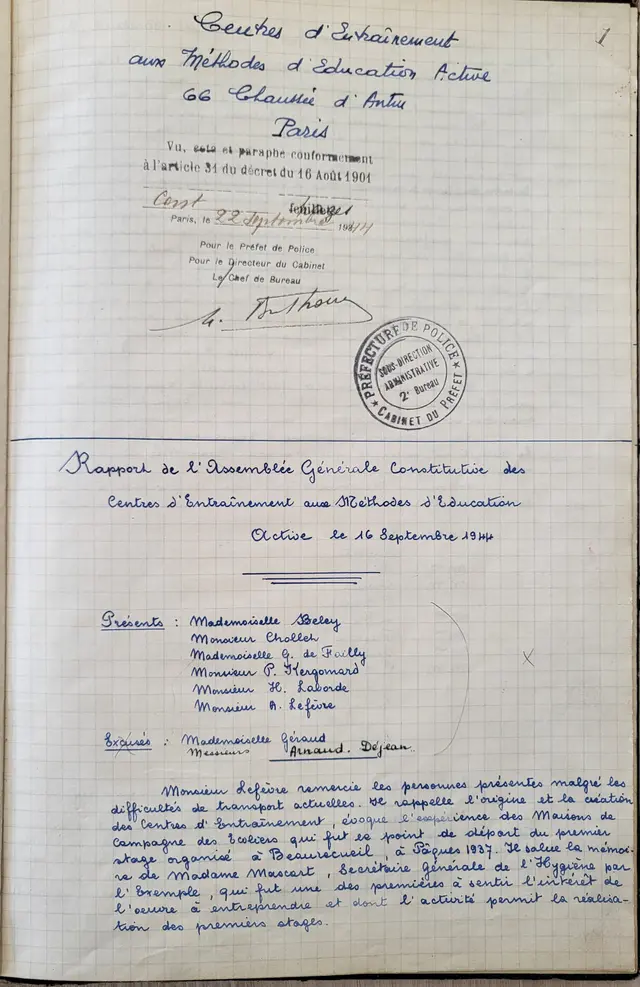 1
Centres d'Entraînement
aux Méthodes d'Education Active
66 Chaussée d'Antin
Paris
Vu, coté et paraphé conformément
à l'article 31 du décret du 16 Août 1901
Cent feuillets
Paris, le 22 Septembre 1944
Pour le Préfet de Police
Pour le Directeur du Cabinet
Le Chef de Bureau
PRÉFECTURE DE POLICE
SOUS-DIRECTION
ADMINISTRATIVE
2e Bureau
CABINET DU PRÉFET
Rapport de l'Assemblée Générale Constitutive des
Centres d'Entraînement aux Méthodes d'Education
Active le 16 Septembre 1944
Présents : Mademoiselle
Monsieur
Mademoiselle G. de Failly
Monsieur P. Kergomard
Monsieur H. Laborde
Monsieur A. Lefèvre
X
Excusés : Mademoiselle Géraud
Messieurs Arnaud. Déjean
Monsieur Lefèvre remercie les personnes présentes malgré les
difficultés de transport actuelles. Il rappelle l'origine et la création
des Centres d'Entraînement, évoque l'expérience des Maisons de
Campagne des Ecoliers qui fut le point de départ du premier
stage organisé à Beaurecueil, à Pâques 1937. Il salue la mémoi-
re de Madame Mascart, Secrétaire Générale de l'Hygiène par
l'Exemple, qui fut une des premières à sentir l'intérêt de
l'oeuvre à entreprendre et dont l'activité permit la réalisa-
tion des premiers stages.